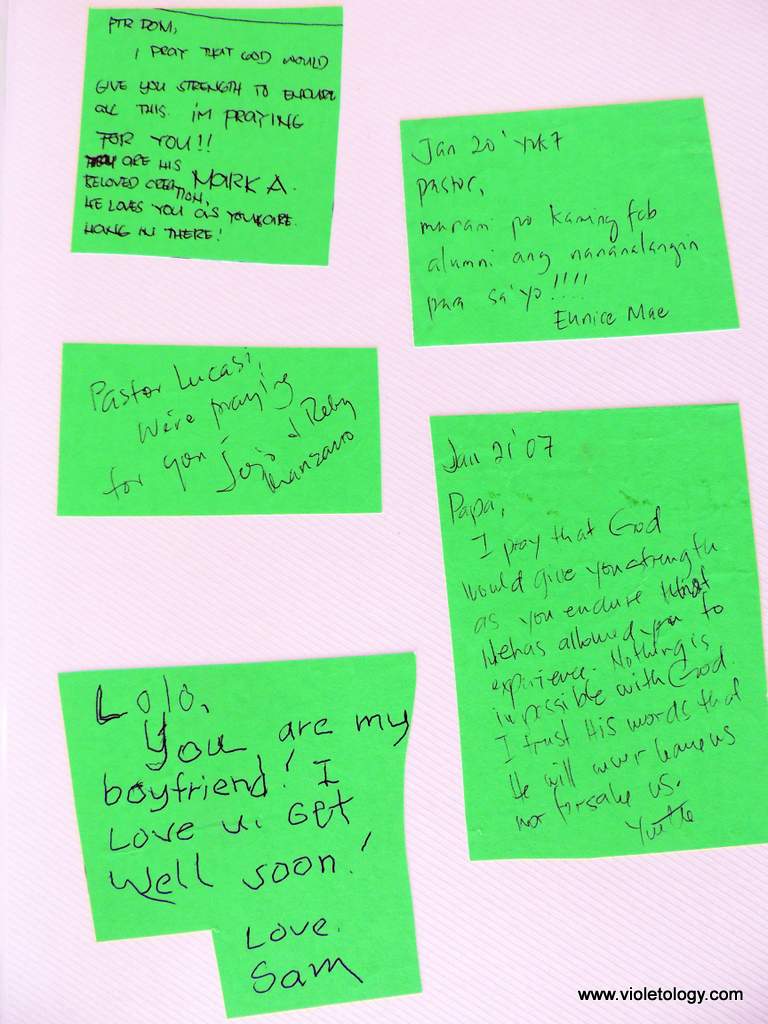 PTR DOM,
I PRAY THAT GOD WOULD
GIVE YOU STRENGTH TO ENDURE
ALL THIS. I'M PRAYING
FOR YOU!!
YOU ARE HIS
BELOVED CREATION, MARK A.
HE LOVES YOU AS YOU ARE.
HANG IN THERE!
Jan 20'
pastor,
marami po kaming fcb
alumni ang nananalangin
para sa'yo!!!!
Eunice Mae
Pastor Lucasi,
We're praying
for you
Jojo & Reby
Manzano
Jan 21'07
Papa,
I pray that God
would give you strength
as you endure what
He has allowed you to
experience. Nothing is
impossible with God.
I trust His words that
He will never leave us
nor forsake us.
Yvette
Lolo,
You are my
boyfriend! I
Love u. Get
Well soon!
Love.
Sam
www.violetology.com